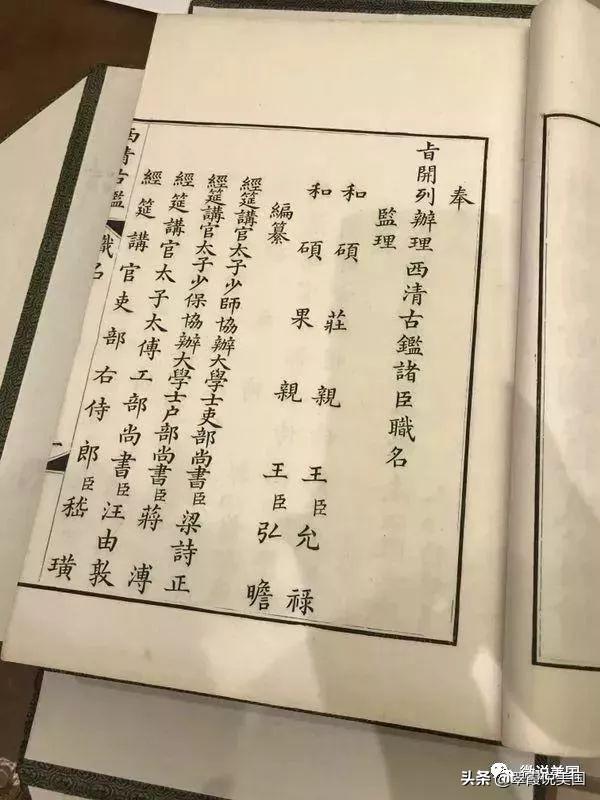 奉
旨開列辦理西清古鑑諸臣職名
監理
和碩莊親王臣允祿
和碩果親王臣弘瞻
編纂
經筵講官太子少師協辦大學士吏部尚書臣梁詩正
經筵講官太子少保協辦大學士户部尚書臣蔣溥
經筵講官太子太傅工部尚書臣汪由敦
經筵講官吏部右侍郎臣嵇璜
西清古鑑 職名 一
微说美国
头条 @翠霞说美国